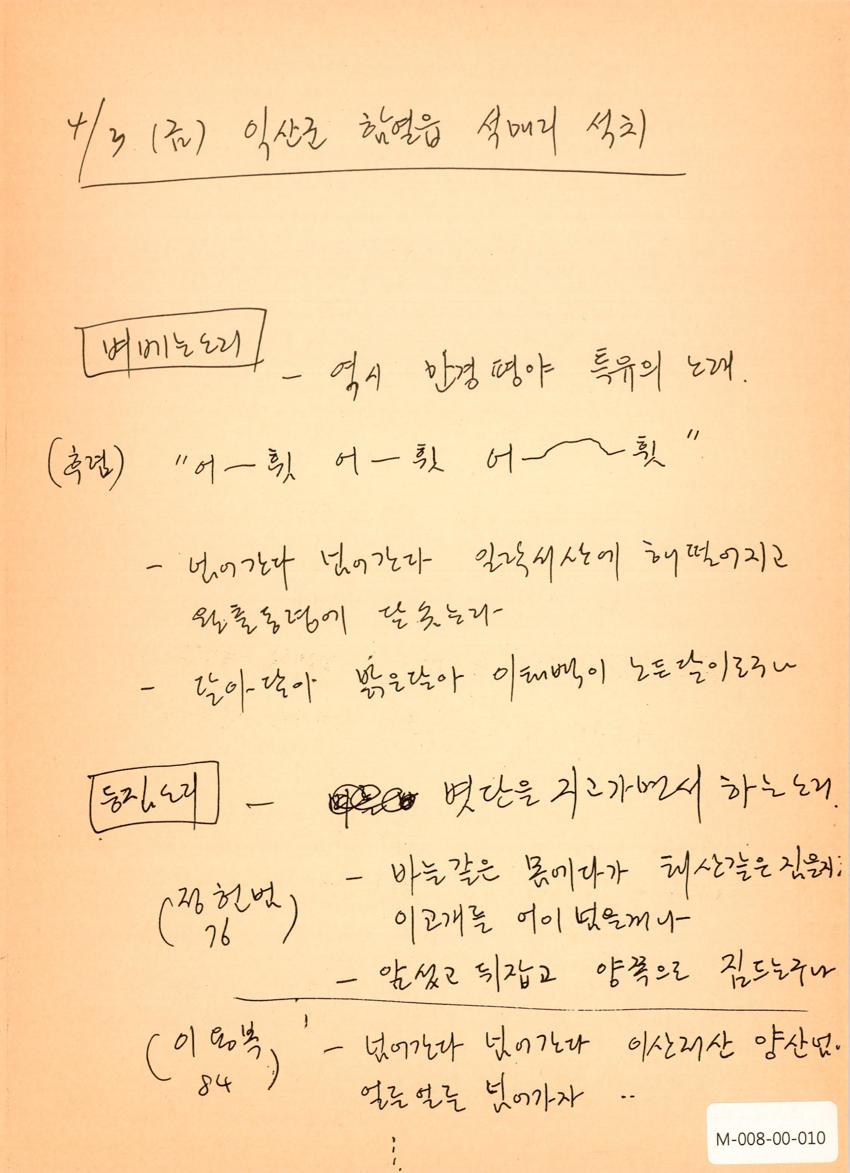 4/3 (금) 익산군 함열읍 석매리 석치
벼베는소리 - 역시 만경평야 특유의 노래.
(후렴) "어—휫 어—휫 어——휫"
- 넘어간다 넘어간다 일락서산에 해떨어지고
월출동령에 달솟는다
- 달아 달아 밝은달아 이태백이 노든달이로구나
등짐소리 - 볏단을 지고가면서 하는 소리.
(정헌범 76) - 바늘같은 몸에다가 태산같은 짐을지
이고개를 어이 넘을꺼나
- 앞섰고 뒤잡고 양쪽으로 짐드는구나
(이 복 84) - 넘어간다 넘어간다 이산저산 양산넘
얼른얼른 넘어가자 ..
M-008-00-010